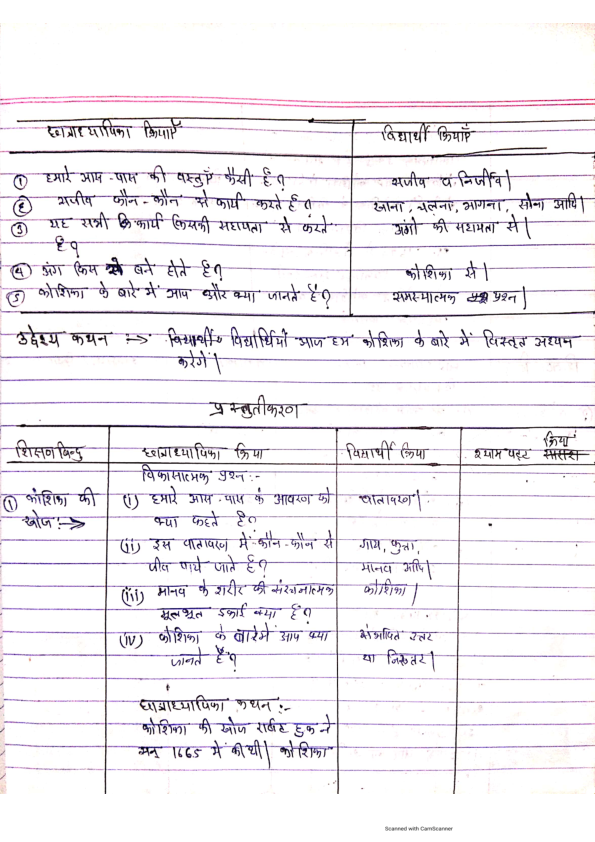 छात्राध्यापिका क्रियाएँ विद्यार्थी क्रियाएँ
① हमारे आप-पास की वस्तुएँ कैसी हैं? सजीव व निर्जीव|
② सजीव कौन-कौन से कार्य करते हैं? खाना, चलना, भागना, सोना आदि|
③ यह सभी कार्य किसकी सहायता से करते अंगों की सहायता से|
हैं?
④ अंग किस से बने होते हैं? कोशिका से|
⑤ कोशिका के बारे में आप और क्या जानते हैं? समस्यात्मक प्रश्न|
उद्देश्य कथन => विद्यार्थियों आज हम कोशिका के बारे में विस्तृत अध्ययन
करेंगे|
प्रस्तुतीकरण
शिक्षण बिन्दु छात्राध्यापिका क्रिया विद्यार्थी क्रिया श्यामपट्ट क्रिया
विकासात्मक प्रश्न:-
① कोशिका की (i) हमारे आप-पास के आवरण को वातावरण|
खोज:-> क्या कहते हैं?
(ii) इस वातावरण में कौन-कौन से गाय, कुत्ता,
जीव पाये जाते हैं? मानव आदि|
(iii) मानव के शरीर की संरचनात्मक कोशिका|
मूलभूत इकाई क्या है?
(iv) कोशिका के बारे में आप क्या संभावित उत्तर
जानते हैं? या निरुत्तर|
छात्राध्यापिका कथन:-
कोशिका की खोज राबर्ट हुक ने
सन् 1665 में की थी| कोशिका
Scanned with CamScanner